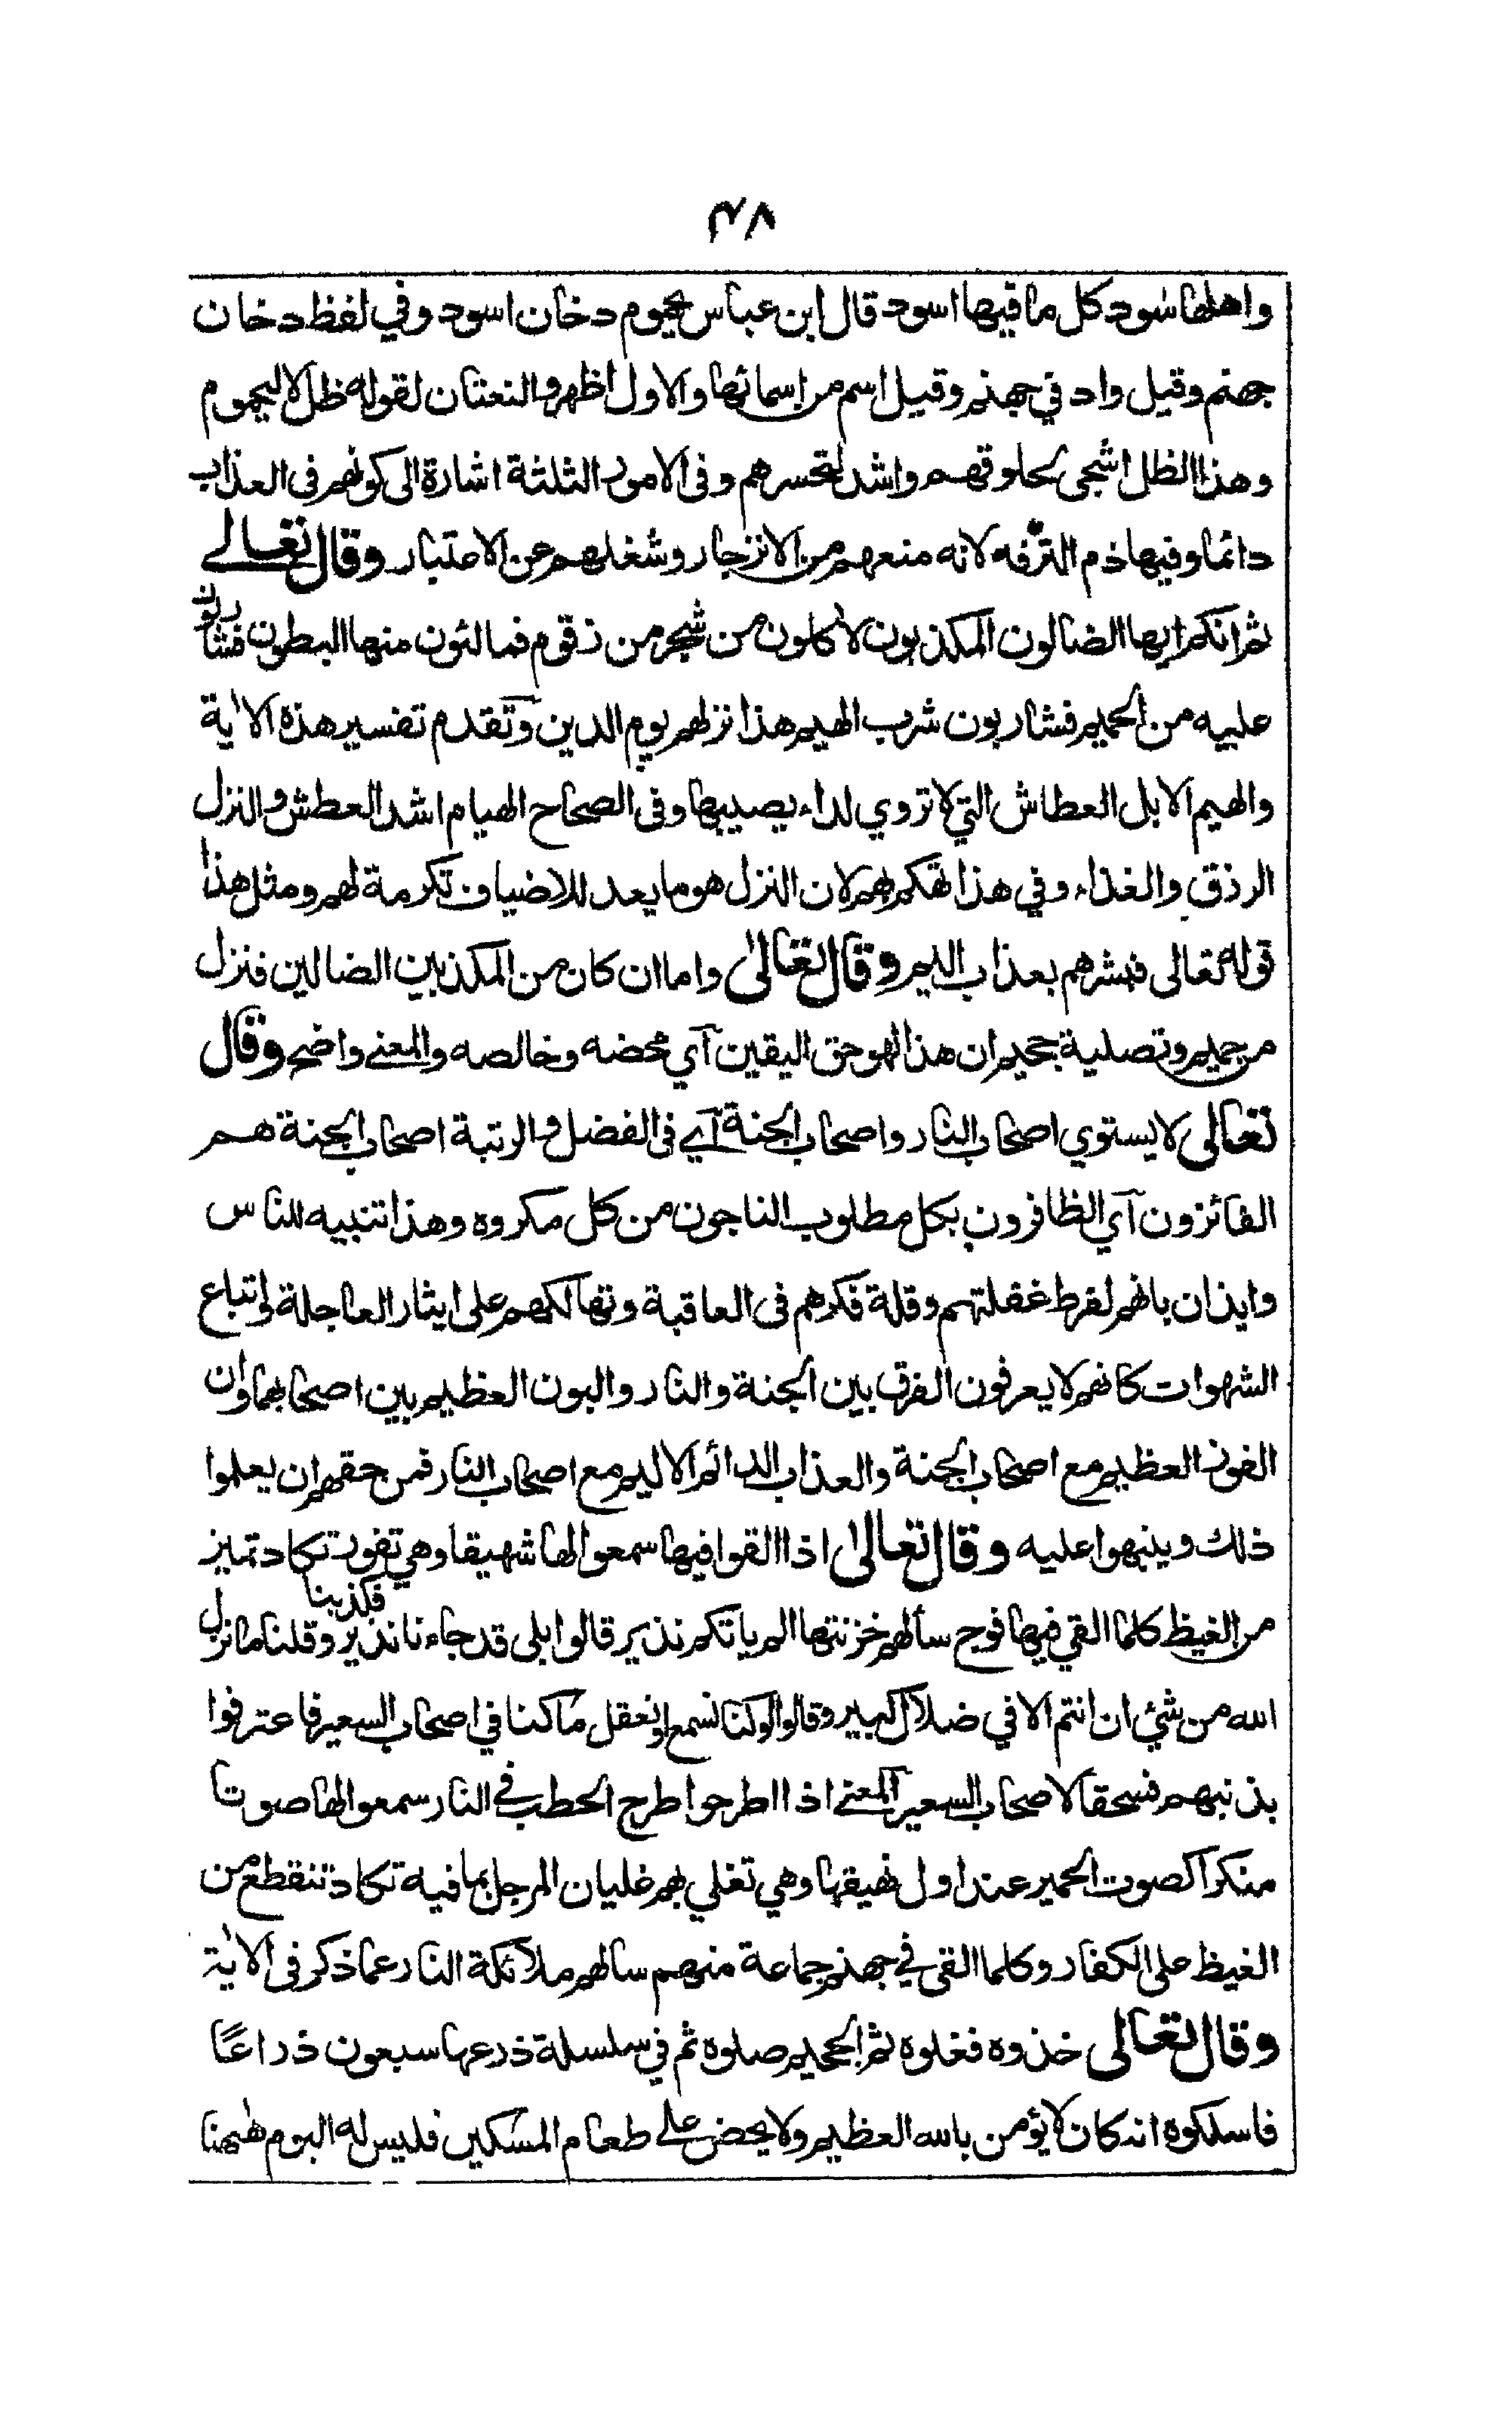 ٣٨
واهلها سود كل ما فيها اسود قال ابن عباس يحموم دخان اسود وفي لفظ دخان
جهنم وقيل واد في جهنم وقيل اسم من اسمائها والاول اظهر والنعتان لقوله ظل لا اليحموم
وهذا الظل اشجى لحلوقهم واشد لتحسرهم وفى الامور الثلثة اشارة الى كونهم فى العذاب
دائما وفيها ذم الترفه لانه منعهم من الانزجار وشغلهم عن الاعتبار وقال تعالے
ثم انكم ايها الضالون المكذبون لاٰكلون من شجر من زقوم فمالئون منها البطون فشاربون
عليه من الحميم فشاربون شرب الهيم هذا نزلهم يوم الدين وتقدم تفسير هذه الاٰية
والهيم الابل العطاش التي لا تروي لداء يصيبها وفى الصحاح الهيام اشد العطش والنزل
الرزق والغذاء وفي هذا تهكم بهم لان النزل هو ما يعد للاضياف تكرمة لهم ومثل هذا
قوله تعالى فبشرهم بعذاب اليم وقال تعالىٰ واما ان كان من المكذبين الضالين فنزل
من حميم وتصلية جحيم ان هذا لهو حق اليقين آي محضه وخالصه والمعنے واضح وقال
تعالى لا يستوي اصحاب النار واصحاب الجنة آے فى الفضل والرتبة اصحاب الجنة هم
الفائزون آي الظافرون بكل مطلوب الناجون من كل مكروه وهذا تنبيه للناس
وايذان بانهم لفرط غفلتهم وقلة فكرهم فى العاقبة وتهالكهم على ايثار العاجلة واتباع
الشهوات كانهم لا يعرفون الفرق بين الجنة والنار والبون العظيم بين اصحابهما وان
الفوز العظيم مع اصحاب الجنة والعذاب الدائم الاليم مع اصحاب النار فمن حقهم ان يعلموا
ذلك وينبهوا عليه وقال تعالىٰ اذا القوا فيها سمعوا لها شهيقا وهي تفور تكاد تميز
من الغيظ كلما القي فيها فوج سألهم خزنتها الم ياتكم نذير قالوا بلى قد جاءنا نذير فكذبنا وقلنا ما نزل
الله من شئ ان انتم الا في ضلال كبير وقالوا لو كنا نسمع او نعقل ما كنا في اصحاب السعير فاعترفوا
بذنبهم فسحقا لاصحاب السعير المعنے اذا اطرحوا طرح الحطب فے النار سمعوا لها صوتا
منكرا كصوت الحمير عند اول نهيقها وهي تغلي بهم غليان المرجل بما فيه تكاد تنقطع من
الغيظ على الكفار وكلما القى فے جهنم جماعة منهم سالهم ملائكة النار عما ذكر فى الاٰية
وقال تعالى خذوه فغلوه ثم الجحيم صلوه ثم في سلسلة ذرعها سبعون ذراعًا
فاسلكوه انه كان لا يؤمن بالله العظيم ولا يحض علے طعام المسكين فليس له اليوم هٰهنا